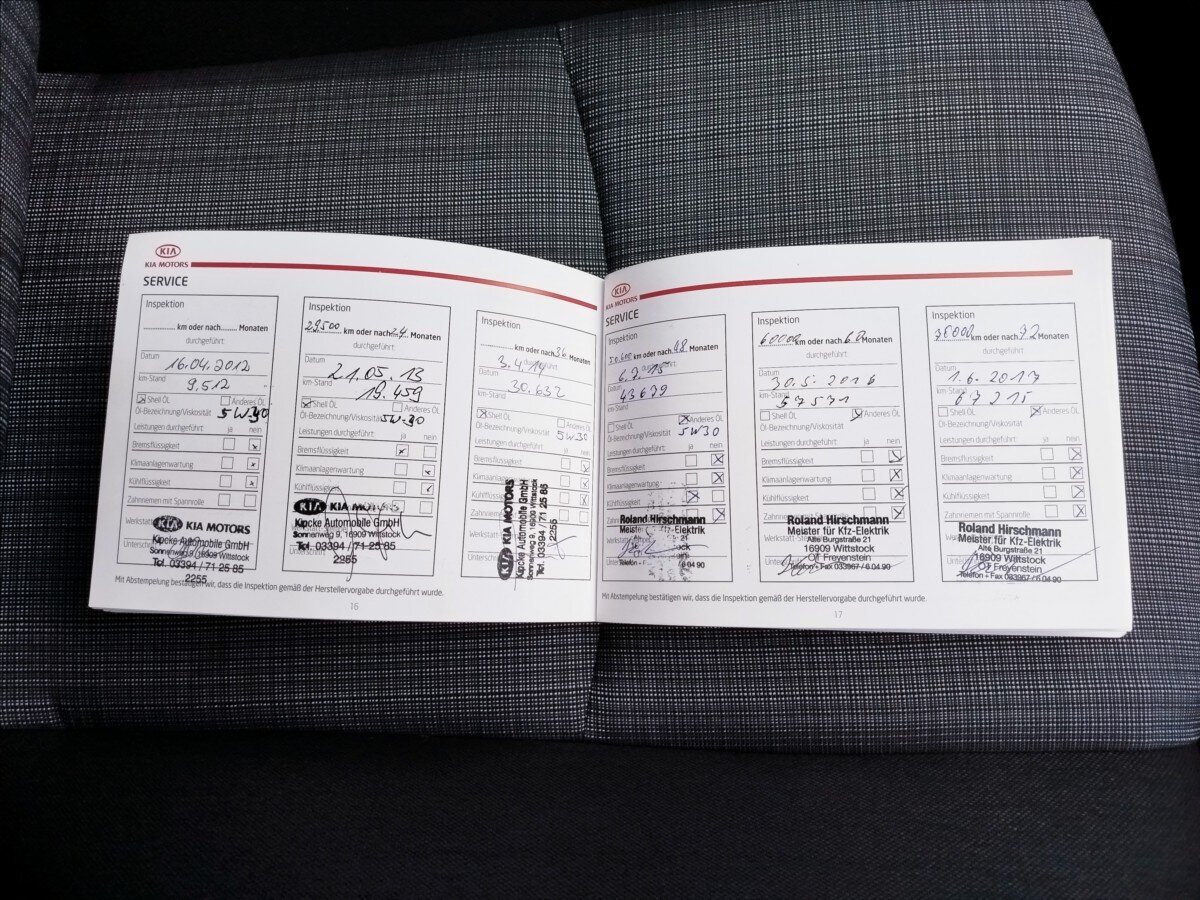 KIA
KIA MOTORS
SERVICE
Inspektion
km oder nach Monaten
durchgeführt:
Datum
16.04.2012
km-Stand
9.512
Shell Öl Anderes Öl
Öl-Bezeichnung/Viskosität 5W30
Leistungen durchgeführt: ja nein
Bremsflüssigkeit
Klimaanlagenwartung
Kühlflüssigkeit
Zahnriemen mit Spannrolle
KIA KIA MOTORS
Kipcke Automobile GmbH
Sonnenweg 9, 16909 Wittstock
Tel. 03394 / 71 25 85
2255
Inspektion
29500 km oder nach 24 Monaten
durchgeführt:
Datum
21.05.13
km-Stand
19.459
Shell Öl Anderes Öl
Öl-Bezeichnung/Viskosität 5W-30
Leistungen durchgeführt: ja nein
Bremsflüssigkeit
Klimaanlagenwartung
Kühlflüssigkeit
KIA KIA MOTORS
Kipcke Automobile GmbH
Sonnenweg 9, 16909 Wittstock
Tel. 03394 / 71 25 85
2255
Inspektion
km oder nach 36 Monaten
3.4.14
Datum
30.632
km-Stand
Shell Öl Anderes Öl
Öl-Bezeichnung/Viskosität
5W30
Leistungen durchgeführt: ja nein
Bremsflüssigkeit
Klimaanlagenwartung
Kühlflüssigkeit
KIA KIA MOTORS
Kipcke Automobile GmbH
Sonnenweg 9, 16909 Wittstock
Tel. 03394 / 71 25 85
2255
Mit Abstempelung bestätigen wir, dass die Inspektion gemäß der Herstellervorgabe durchgeführt wurde.
16
KIA
KIA MOTORS
SERVICE
Inspektion
km oder nach 48 Monaten
durchgeführt:
Datum
km-Stand
43679
Shell Öl Anderes Öl
Öl-Bezeichnung/Viskosität
5W30
Leistungen durchgeführt: ja nein
Bremsflüssigkeit
Klimaanlagenwartung
Kühlflüssigkeit
Roland Hirschmann
Inspektion
60000 km oder nach Monaten
durchgeführt:
Datum
30.5.2016
km-Stand
57571
Shell Öl Anderes Öl
Öl-Bezeichnung/Viskosität
Leistungen durchgeführt: ja nein
Bremsflüssigkeit
Klimaanlagenwartung
Kühlflüssigkeit
Roland Hirschmann
Meister für Kfz-Elektrik
Alte Burgstraße 21
16909 Wittstock
OT Freyenstein
Telefon + Fax 033967 / 6 04 90
Inspektion
km oder nach Monaten
durchgeführt:
Datum
1.6.2017
km-Stand
67215
Shell Öl Anderes Öl
Öl-Bezeichnung/Viskosität
Leistungen durchgeführt: ja nein
Bremsflüssigkeit
Klimaanlagenwartung
Kühlflüssigkeit
Zahnriemen mit Spannrolle
Roland Hirschmann
Meister für Kfz-Elektrik
Alte Burgstraße 21
16909 Wittstock
OT Freyenstein
Telefon + Fax 033967 / 6 04 90
Mit Abstempelung bestätigen wir, dass die Inspektion gemäß der Herstellervorgabe durchgeführt wurde.
17